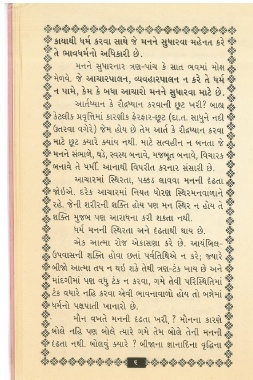 કાયાથી ધર્મ કરવા સાથે જે મનને સુધારવા મહેનત કરે
તે ભાવધર્મનો અધિકારી છે.
મનને સુધારનાર ત્રણ-પાંચ કે સાત ભવમાં મોક્ષ
મેળવે. જે આચારપાલન, વ્યવહારપાલન ન કરે તે ધર્મ
ન પામે, કેમ કે બધા આચારો મનને સુધારવા માટે છે.
આર્તધ્યાન કે રૌદ્રધ્યાન કરવાની છૂટ ખરી? બાહ્ય
કેટલીક પ્રવૃત્તિમાં કારણીક ફેરફાર-છૂટ (દા.ત. સાધુને નદી
ઉતરવા વગેરે) જેમ હોય છે તેમ આર્ત કે રૌદ્રધ્યાન કરવા
માટે છૂટ ક્યારે ક્યાંય નથી. માટે સત્વહીન ન બનતા જે
મનને સંભાળે, ઘડે, સ્વસ્થ બનાવે, મજબૂત બનાવે, વિચારક
બનાવે તે ધર્મી. આનાથી વિપરીત કરનાર સંસારી છે.
આચારમાં સ્થિરતા, પક્કડ લાવવા મનની દઢતા
જોઈએ. દરેક આચારમાં નિયત ધોરણ સ્થિરમનવાળાને
રહે. જેની શરીરની શક્તિ હોય પણ મન સ્થિર ન હોય તે
શક્તિ મુજબ પણ આરાધના કરી શકતા નથી.
ધર્મ મનની સ્થિરતા અને દઢતાથી થાય છે.
એક આત્મા રોજ એકાસણા કરે છે. આયંબિલ-
ઉપવાસની શક્તિ હોવા છતાં પર્વતિથિએ ન કરે; જ્યારે
બીજો આત્મા તપ ન થઈ શકે તેથી ત્રણ-ટેક ખાય છે અને
માંદગીમાં પણ વધુ ટેક ન કરવા, ગમે તેવી પરિસ્થિતિમાં
ટેક વધારે નહિ કરવા એવી ભાવનાવાળો હોય તો બન્નેમાં
ધર્મનો પક્ષપાતી ખાનારો છે.
મૌન વખતે મનની દઢતા ખરી, ? મૌનના કારણે
બોલે નહિ પણ બોલે ત્યારે ગમે તેમ બોલે તેની મનની
દઢતા નથી. બોલવું ક્યારે ? બીજાના જ્ઞાનાદિના વૃદ્ધિના
૬